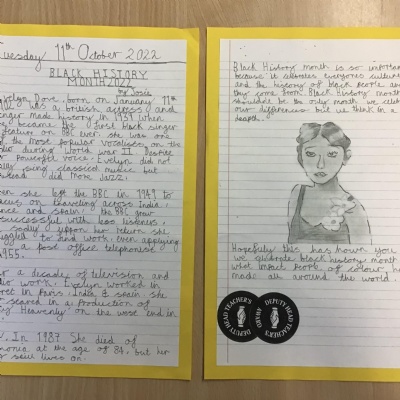 Tuesday 11th October 2022
BLACK HISTORY
MONTH 2022
by Josie
Evelyn Dove, born on January 11th
was a british actress and
singer made history in 1939 when
became the first black singer
feature on BBC ever. she was one
of the most popular vocalists on the
radio during World war II. Despite
powerful voice. Evelyn did not
sing classical music but
instead did More Jazz.
she left the BBC in 1949 to
focus on traveling across India,
and Spain. the BBC grew
successful with less listeners,
upon her return she
struggled to find work, even applying
a post office telephonist
1955.
a decade of television and
work. Evelyn worked in
in Paris India & Spain she
in a production of
Heavenly' on the west end in
In 1987 She died of
at the age of 84, but her
lives on.
Black History month is so important
because it celebrates everyones culture
and the history of black People and
they come from. Black History month
shouldn't be the only month we celebrate
our differences but we think in a
Hopefully this has shown you
we celebrate black history month
what impact People of colour have
made all around the world.
DEPUTY HEAD TEACHER'S
AWARD
DEPUTY HEAD TEACHER'S
AWARD